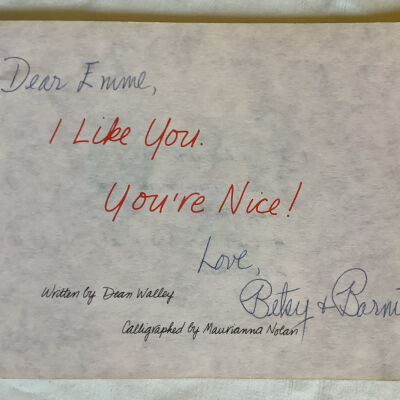 Dear Emme,
I Like You.
You're Nice!
Love,
Betsy &
Written by Dean Walley
Calligraphed by Maurianna Nolan